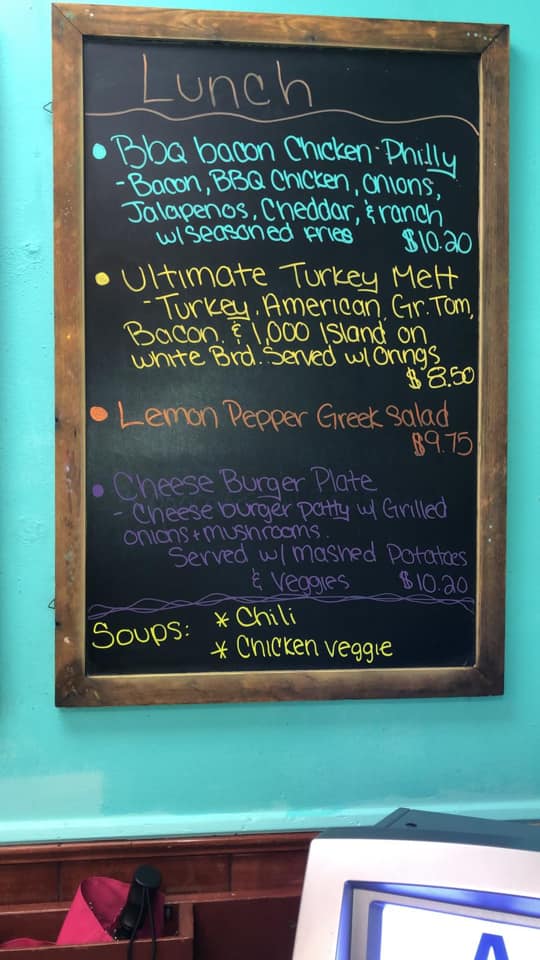 Lunch
• Bbq bacon Chicken Philly
- Bacon, BBQ Chicken, onions,
Jalapenos, Cheddar, & ranch
w/ seasoned fries $10.20
• Ultimate Turkey Melt
- Turkey, American, Gr. Tom,
Bacon, & 1,000 Island on
white Brd. Served w/ Orings
$8.50
• Lemon Pepper Greek Salad
$9.75
• Cheese Burger Plate
- Cheese burger patty w/ Grilled
onions + mushrooms.
Served w/ mashed Potatoes
& Veggies $10.20
Soups: * Chili
* Chicken veggie
A